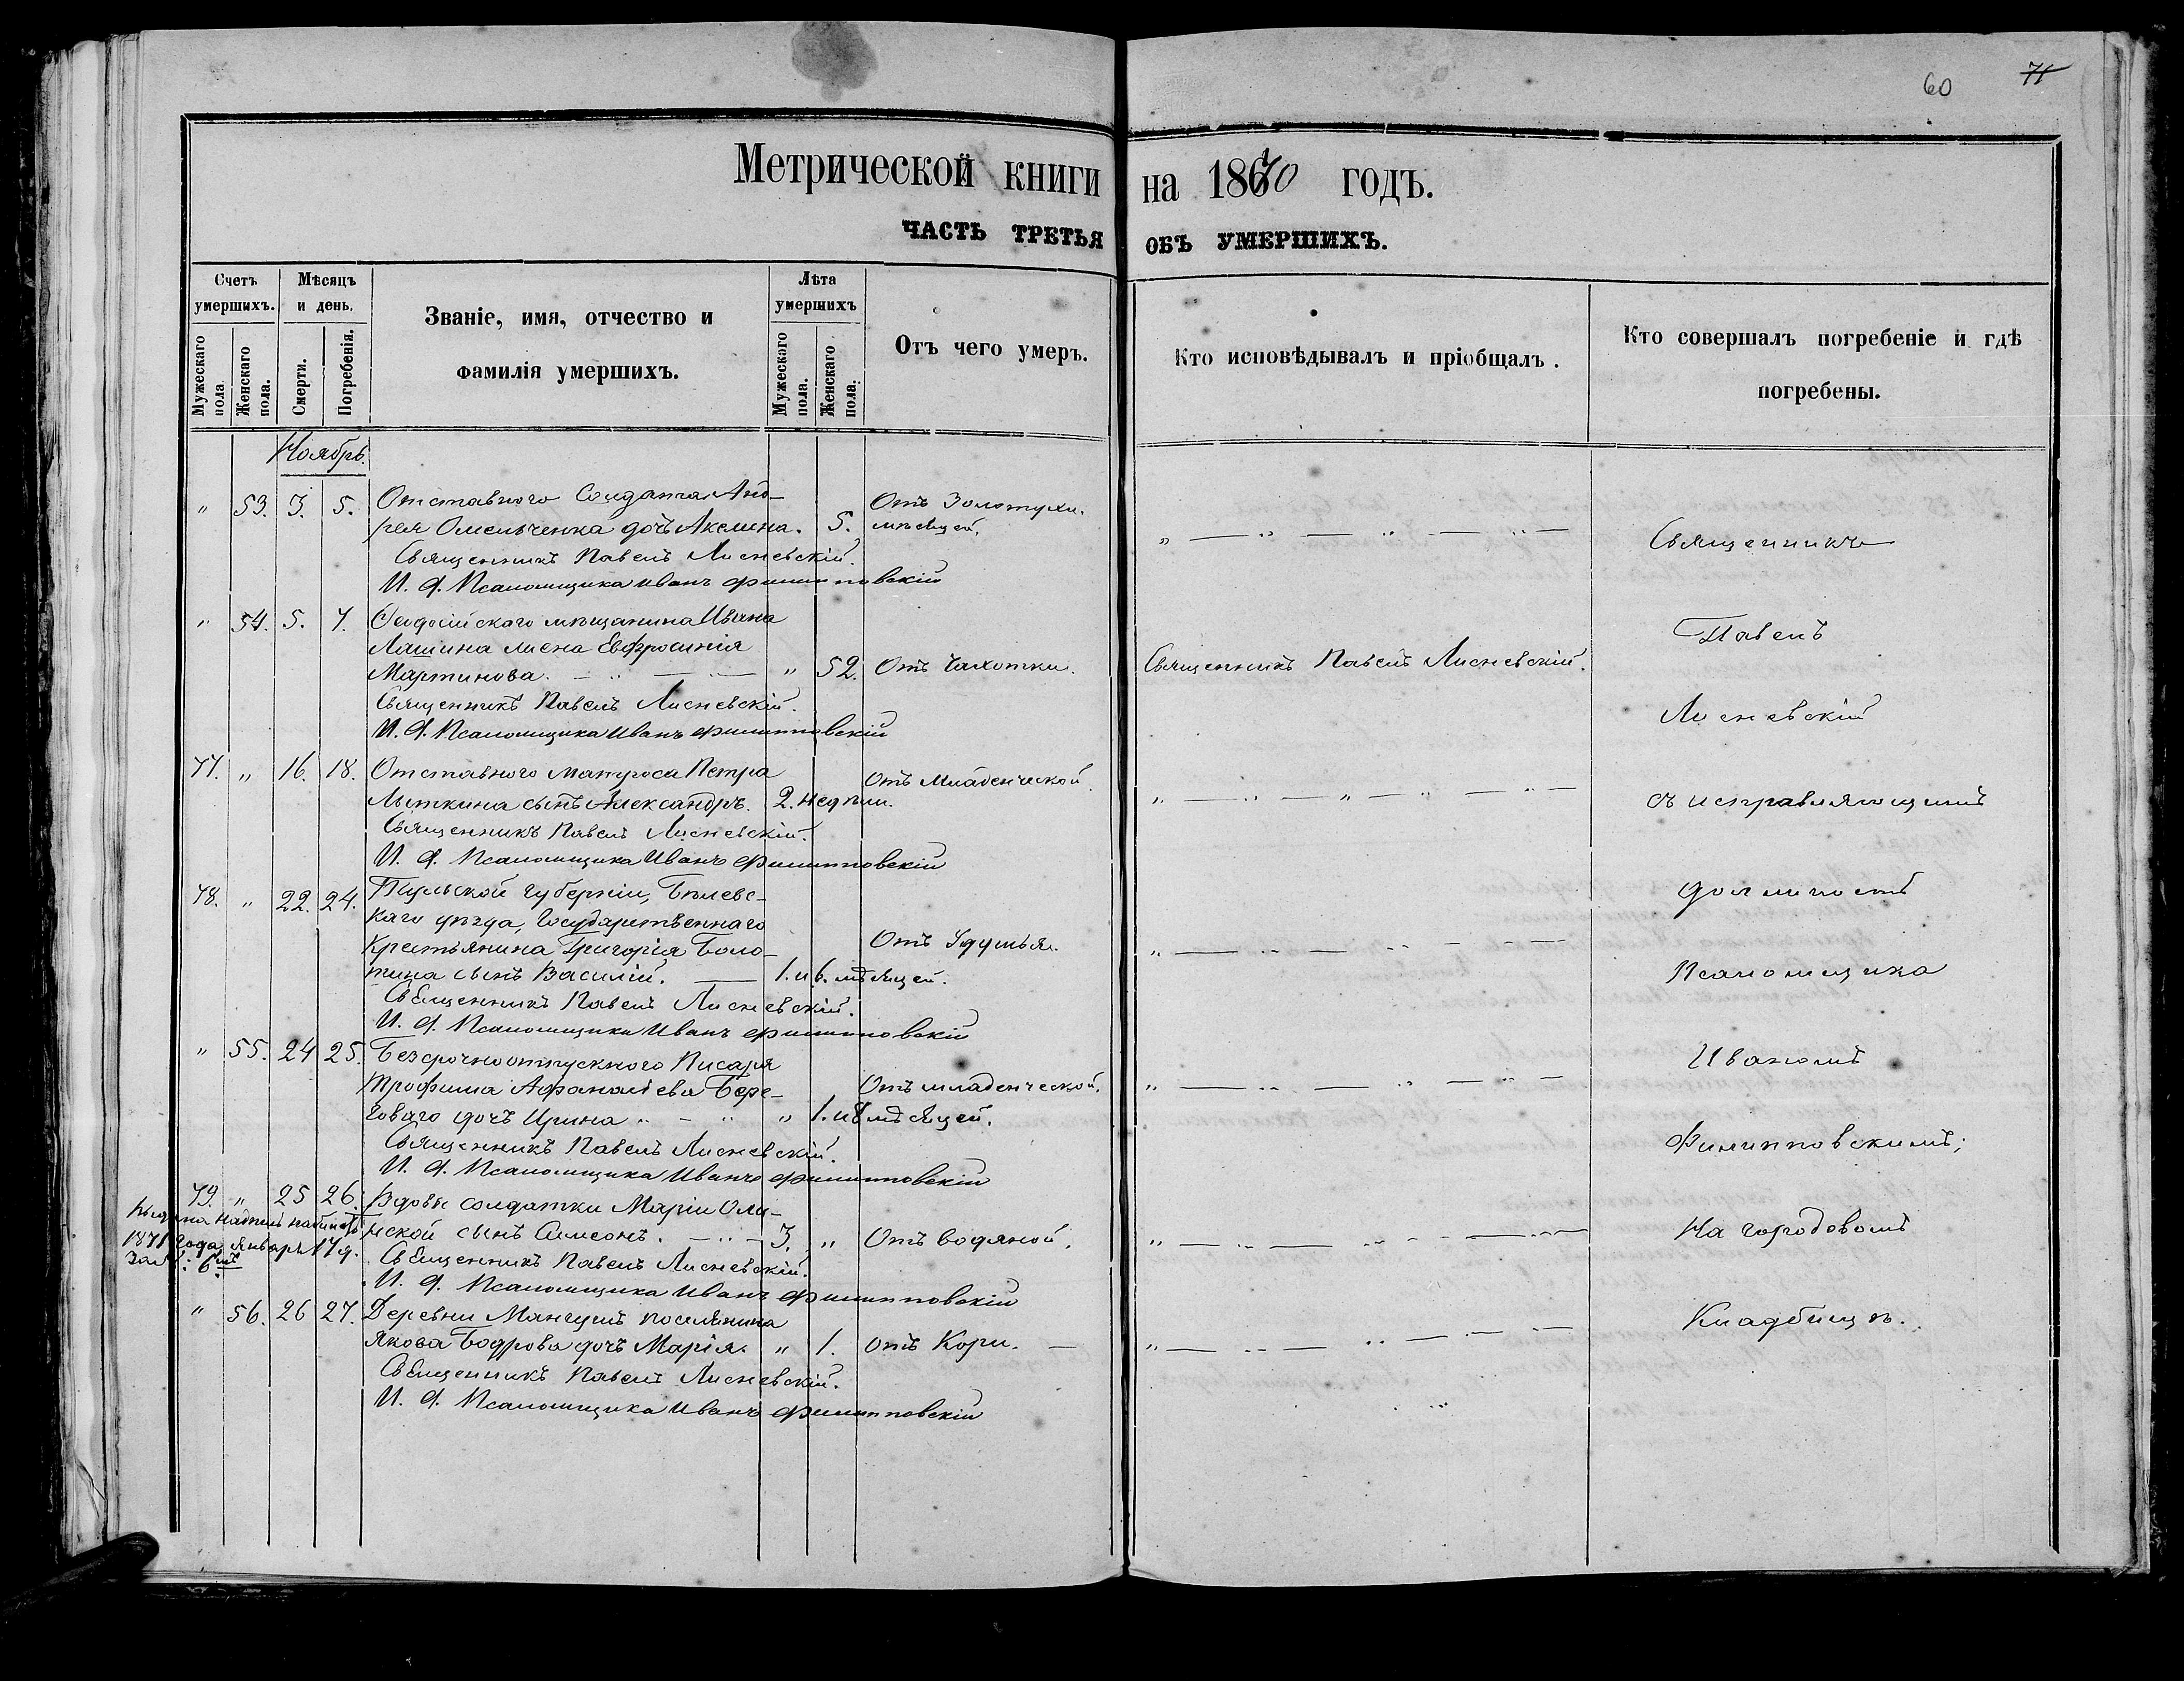 60 71
Метрической книги на 1870 годъ.
ЧАСТЬ ТРЕТЬЯ ОБЪ УМЕРШИХЪ.
Счетъ умершихъ.
Мѣсяцъ и день.
Званіе, имя, отчество и фамилія умершихъ.
Лѣта умершихъ
Отъ чего умеръ.
Кто исповѣдывалъ и пріобщалъ.
Кто совершалъ погребеніе и гдѣ погребены.
Мужескаго пола.
Женскаго пола.
Смерти.
Погребенія.
Мужескаго пола.
Женскаго пола.
Ноябрь.
" 53. 3. 5. Отставного Солдата Анд-
рея Омельченка дочь Акелина. 5. мѣсяцей. Отъ Золотухи.
Священникъ Павелъ Лисневскій.
И. д. Псаломщика Иванъ Филипповскій
" 54. 5. 7. Феодосійскаго мѣщанина Ивана
Лашина жена Евфросинія
Мартинова. " 52. Отъ Чахотки. Священникъ Павелъ Лисневскій.
Священникъ Павелъ Лисневскій.
И. д. Псаломщика Иванъ Филипповскій
77. " 16. 18. Отставного матроса Петра
Лыткина сынъ Александръ. 2. недѣли. Отъ Младенческой.
Священникъ Павелъ Лисневскій.
И. д. Псаломщика Иванъ Филипповскій
78. " 22. 24. Тульской губерніи, Бѣлевс-
каго уѣзда, Государственнаго
Крестьянина Григорія Боло-
тина сынъ Василій. 1. и 6. мѣсяцей. Отъ Удушья.
Священникъ Павелъ Лисневскій.
И. д. Псаломщика Иванъ Филипповскій
" 55. 24 25. Безсрочноотпускного Писаря
Трофима Афанасіева Бере-
говаго дочь Ирина " 1. и 8 мѣсяцей. Отъ младенческой.
Священникъ Павелъ Лисневскій.
И. д. Псаломщика Иванъ Филипповскій
79. " 25 26. Вдовы солдатки Маріи Оли-
мской сынъ Симеонъ. 3. " Отъ водяной.
Священникъ Павелъ Лисневскій.
И. д. Псаломщика Иванъ Филипповскій
1871 года Января 17 д.
" 56. 26 27. Деревни Мангушъ поселянина
Якова Бодрова дочь Марія. " 1. Отъ Кори.
Священникъ Павелъ Лисневскій.
И. д. Псаломщика Иванъ Филипповскій
Священникъ
Павелъ
Лисневскій
съ исправляющимъ
должность
Псаломщика
Иваномъ
Филипповскимъ;
На городовомъ
Кладбищѣ.